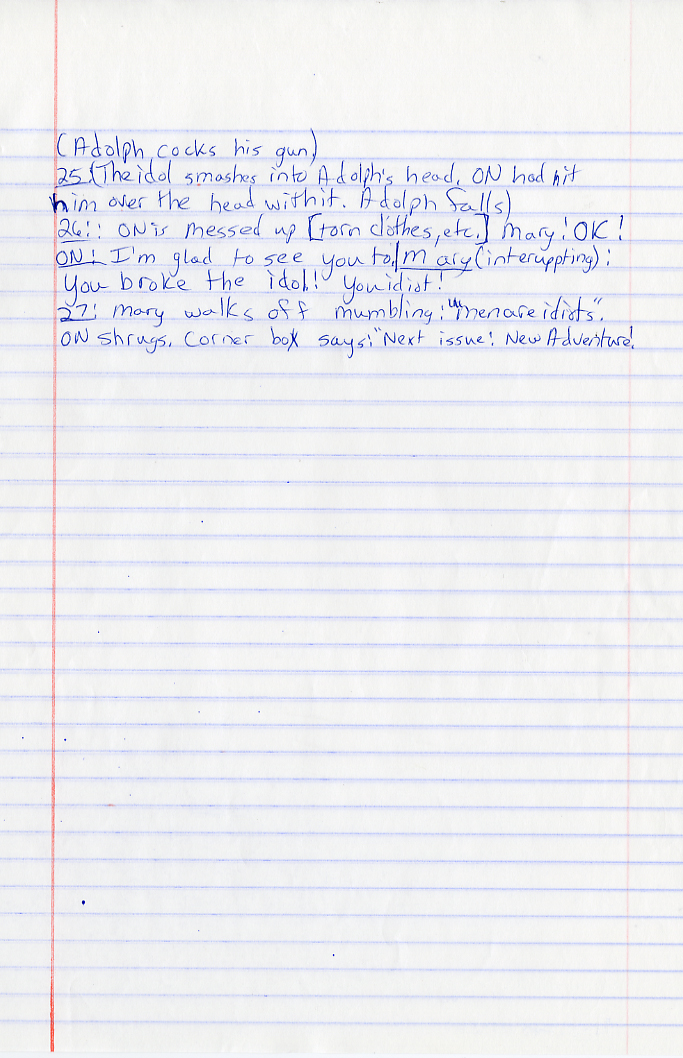 (Adolph cocks his gun)
25(The idol smashes into Adolph's head. ON had hit
him over the head with it. Adolph falls)
26!: ON is messed up [torn clothes, etc.] Mary! OK!
ON! I'm glad to see you to./Mary (interuppting):
You broke the idol! You idiot!
27: Mary walks off mumbling: "Men are idiots".
ON shrugs. Corner box says: "Next issue: New Adventure!